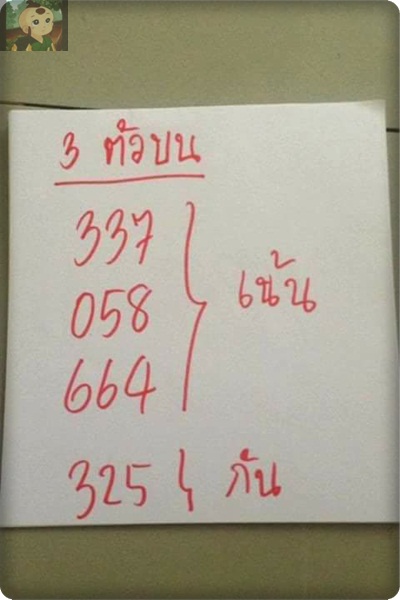 3 ตัวบน
337
058
664
เน้น
325 } กัน